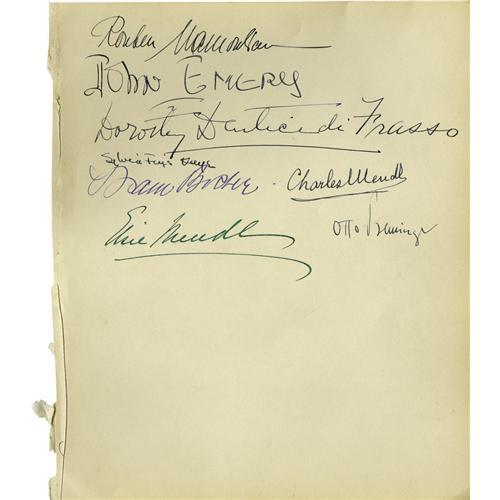 Rouben Mamoulian
John Emery
Dorothy Dentice di Frasso
Sylvia
Charles Mendl
Elsie Mendl
Otto Preminger